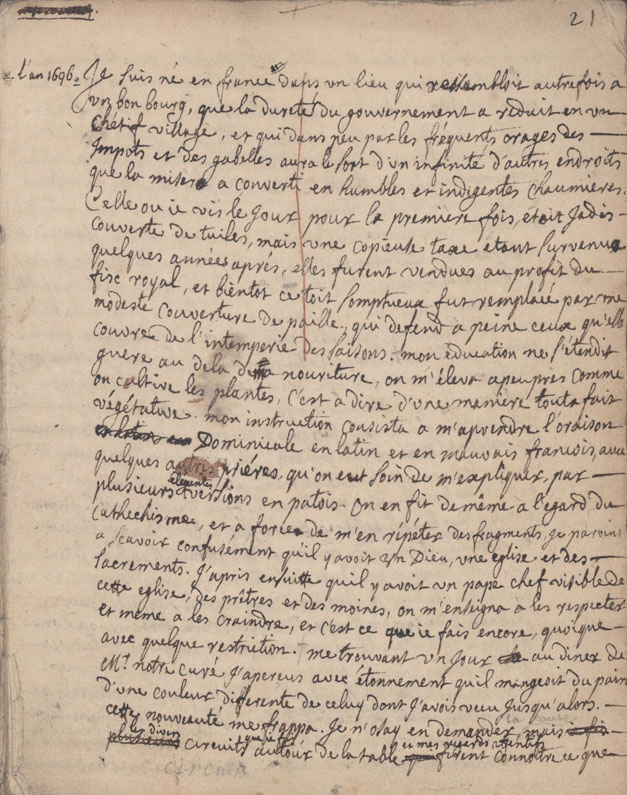 21
l'an 1696. Je suis né en france dans un lieu qui ressembloit autrefois a
un bon bourg, que la dureté du gouvernement a reduit en un
chétif village, et qui dans peu par les fréquents orages des
Impots et des gabelles aura le sort d'un infinité d'autres endroits
que la misere a converti en humbles et indigentes chaumieres.
Celle ou ie vis le jour pour la première fois, etoit Jadis
couverte de tuiles, mais une copieuse taxe etant survenue
quelques années aprés, elles furent vendues au profit du
fisc royal, et bientot ce toit somptueux fut remplacé par une
modeste couverture de paille, qui defend a peine ceux qu'elle
couvre de l'intemperie des saisons. mon education ne s'étendit
guere au dela de ma nouriture, on m'éleva a peu près comme
on cultive les plantes, c'est a dire d'une maniere tout a fait
végétative. mon instruction consista a m'aprendre l'oraison
Dominicale en latin et en mauvais francois, avec
quelques autres priéres, qu'on eut soin de m'expliquer par
plusieurs elegantes versions en patois. On en fit de même a l'egard du
cathechisme, et a force de m'en répéter des fragments, je parvins
a scavoir confusément qu'il y avoit un Dieu, une eglise et des
sacrements. J'apris ensuitte qu'il y avoit un pape chef visible de
cette eglise, des prêtres et des moines, on m'enseigna a les respecter
et même a les craindre, et c'est ce que ie fais encore, quoique
avec quelque restriction. me trouvant un jour au diner de
Mr. notre curé J'apercus avec étonnement qu'il mangeoit du pain
d'une couleur differente de celuy dont j'avois veu jusqu'alors.
cette nouveauté me frappa. Je n'osay en demander la cause, mais
les divers circuits que ie fis autour de la table et mes regards attentifs firent connoitre ce que
circuits